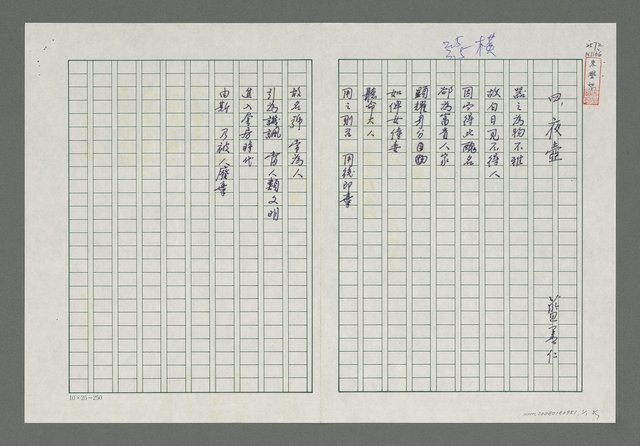 橫
四、夜壺
藍善仁
器之為物不雅
故白日見不得人
因而得此醜名
卻為富貴人家
顯耀身分
如俾女侍妾
聽命夫人
用之則召 用後即棄
故名譚 常為人
引為譏諷 當人類文明
進入套房時代
由斯 乃被人廢棄
10×25=250